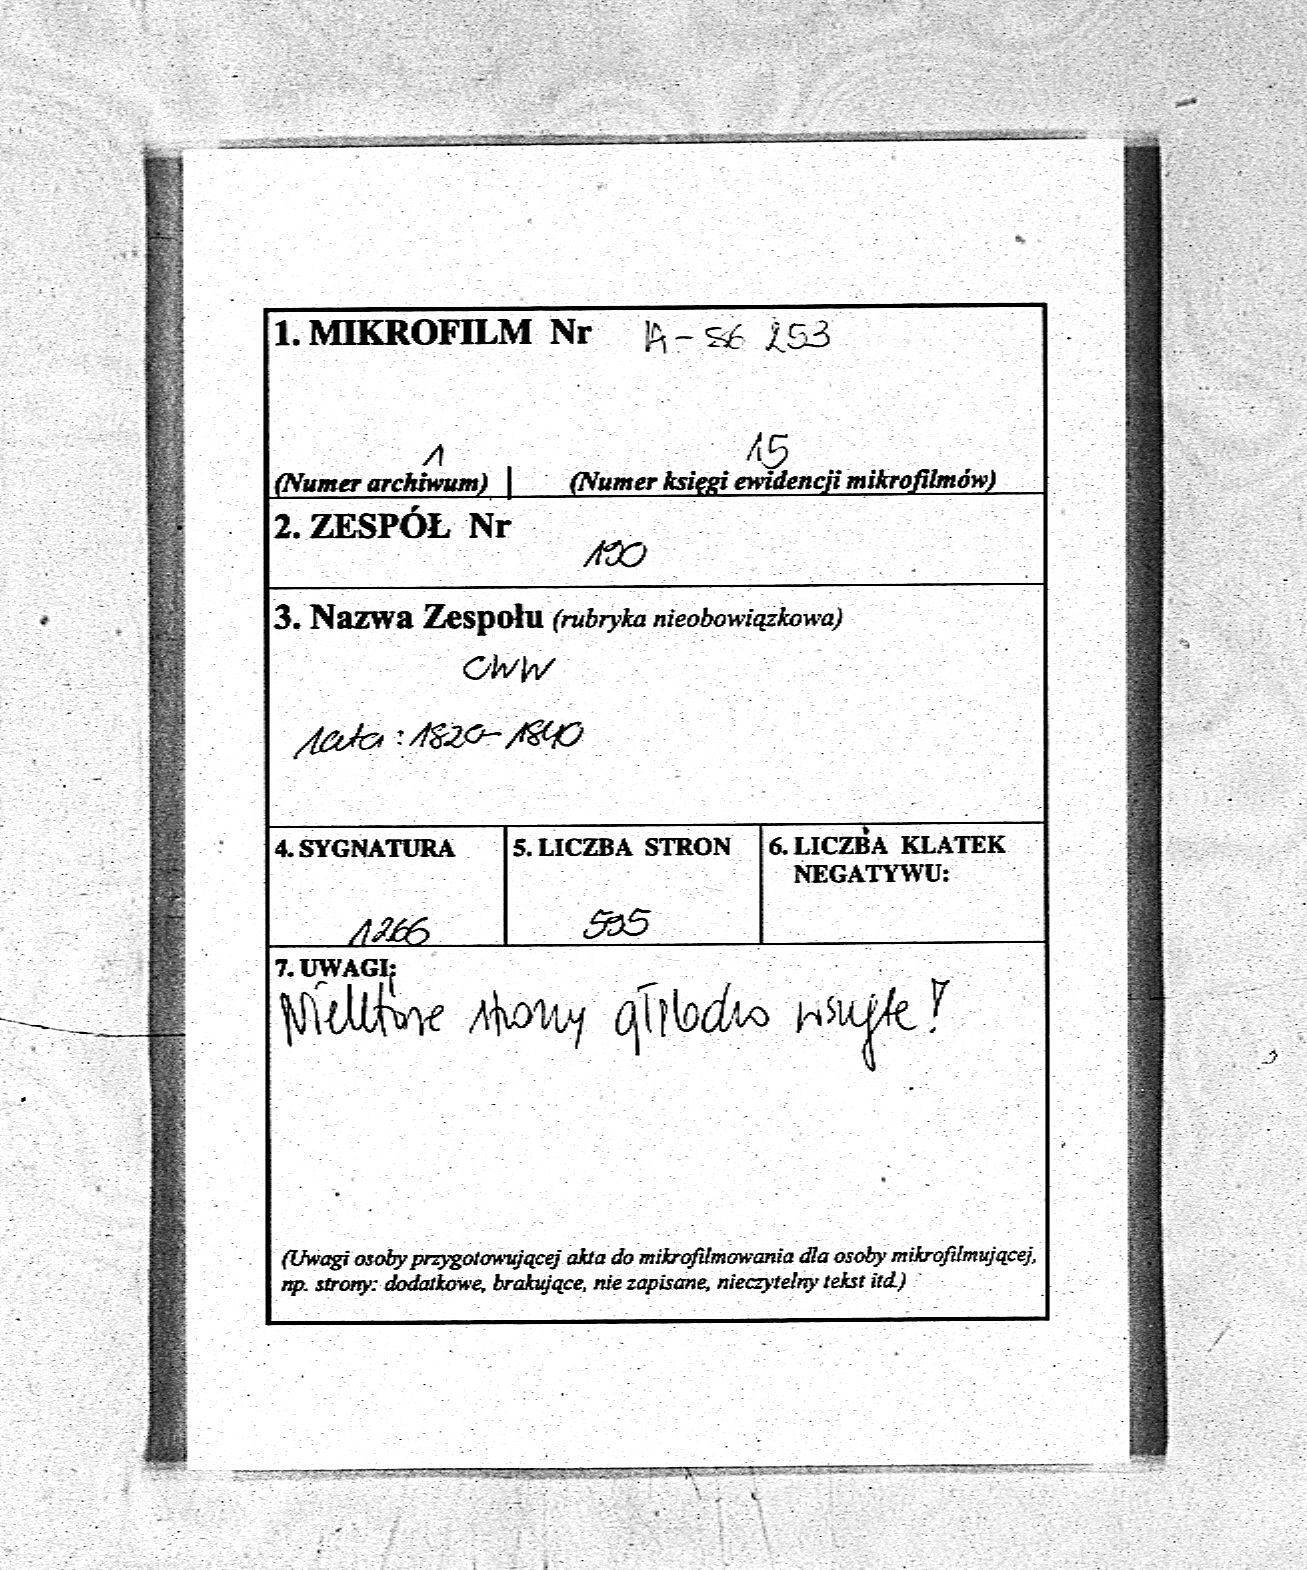 1. MIKROFILM Nr A-56 253
1 15
(Numer archiwum) (Numer księgi ewidencji mikrofilmów)
2. ZESPÓŁ Nr
190
3. Nazwa Zespołu (rubryka nieobowiązkowa)
CWW
lata: 1820-1840
4. SYGNATURA 5. LICZBA STRON 6. LICZBA KLATEK
NEGATYWU:
1266 595
7. UWAGI:
Niektóre strony głęboko wszyte!
(Uwagi osoby przygotowującej akta do mikrofilmowania dla osoby mikrofilmującej,
np. strony: dodatkowe, brakujące, nie zapisane, nieczytelny tekst itd.)